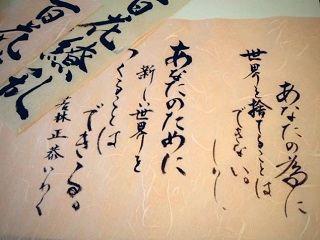 百花繚乱
百花
あなたの為に
世界を捨てることは
できない。
しかし、
あなたのために
新しい世界を
つくることは
できる。
若林正恭いわく